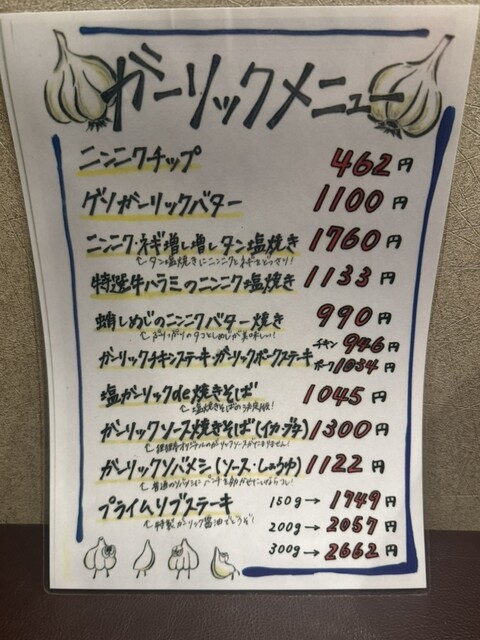 ガーリックメニュー
ニンニクチップ 462円
ゲソガーリックバター 1100円
ニンニク・ネギ増し増しタン塩焼き 1760円
↑タン塩焼きにニンニクとネギをどっさり!
特選牛ハラミのニンニク塩焼き 1133円
蛸しめじのニンニクバター焼き 990円
ガーリックチキンステーキ・ガーリックポークステーキ チキン946円
ポーク1034円
塩ガーリックde焼きそば 1045円
↑塩焼きそばの決定版!
ガーリックソース焼きそば(イカ・ブタ) 1300円
ガーリックソバメシ(ソース・しょうゆ) 1122円
プライムリブステーキ 150g→1749円
↑特製ガーリック醤油でどうぞ!
200g→2057円
300g→2662円